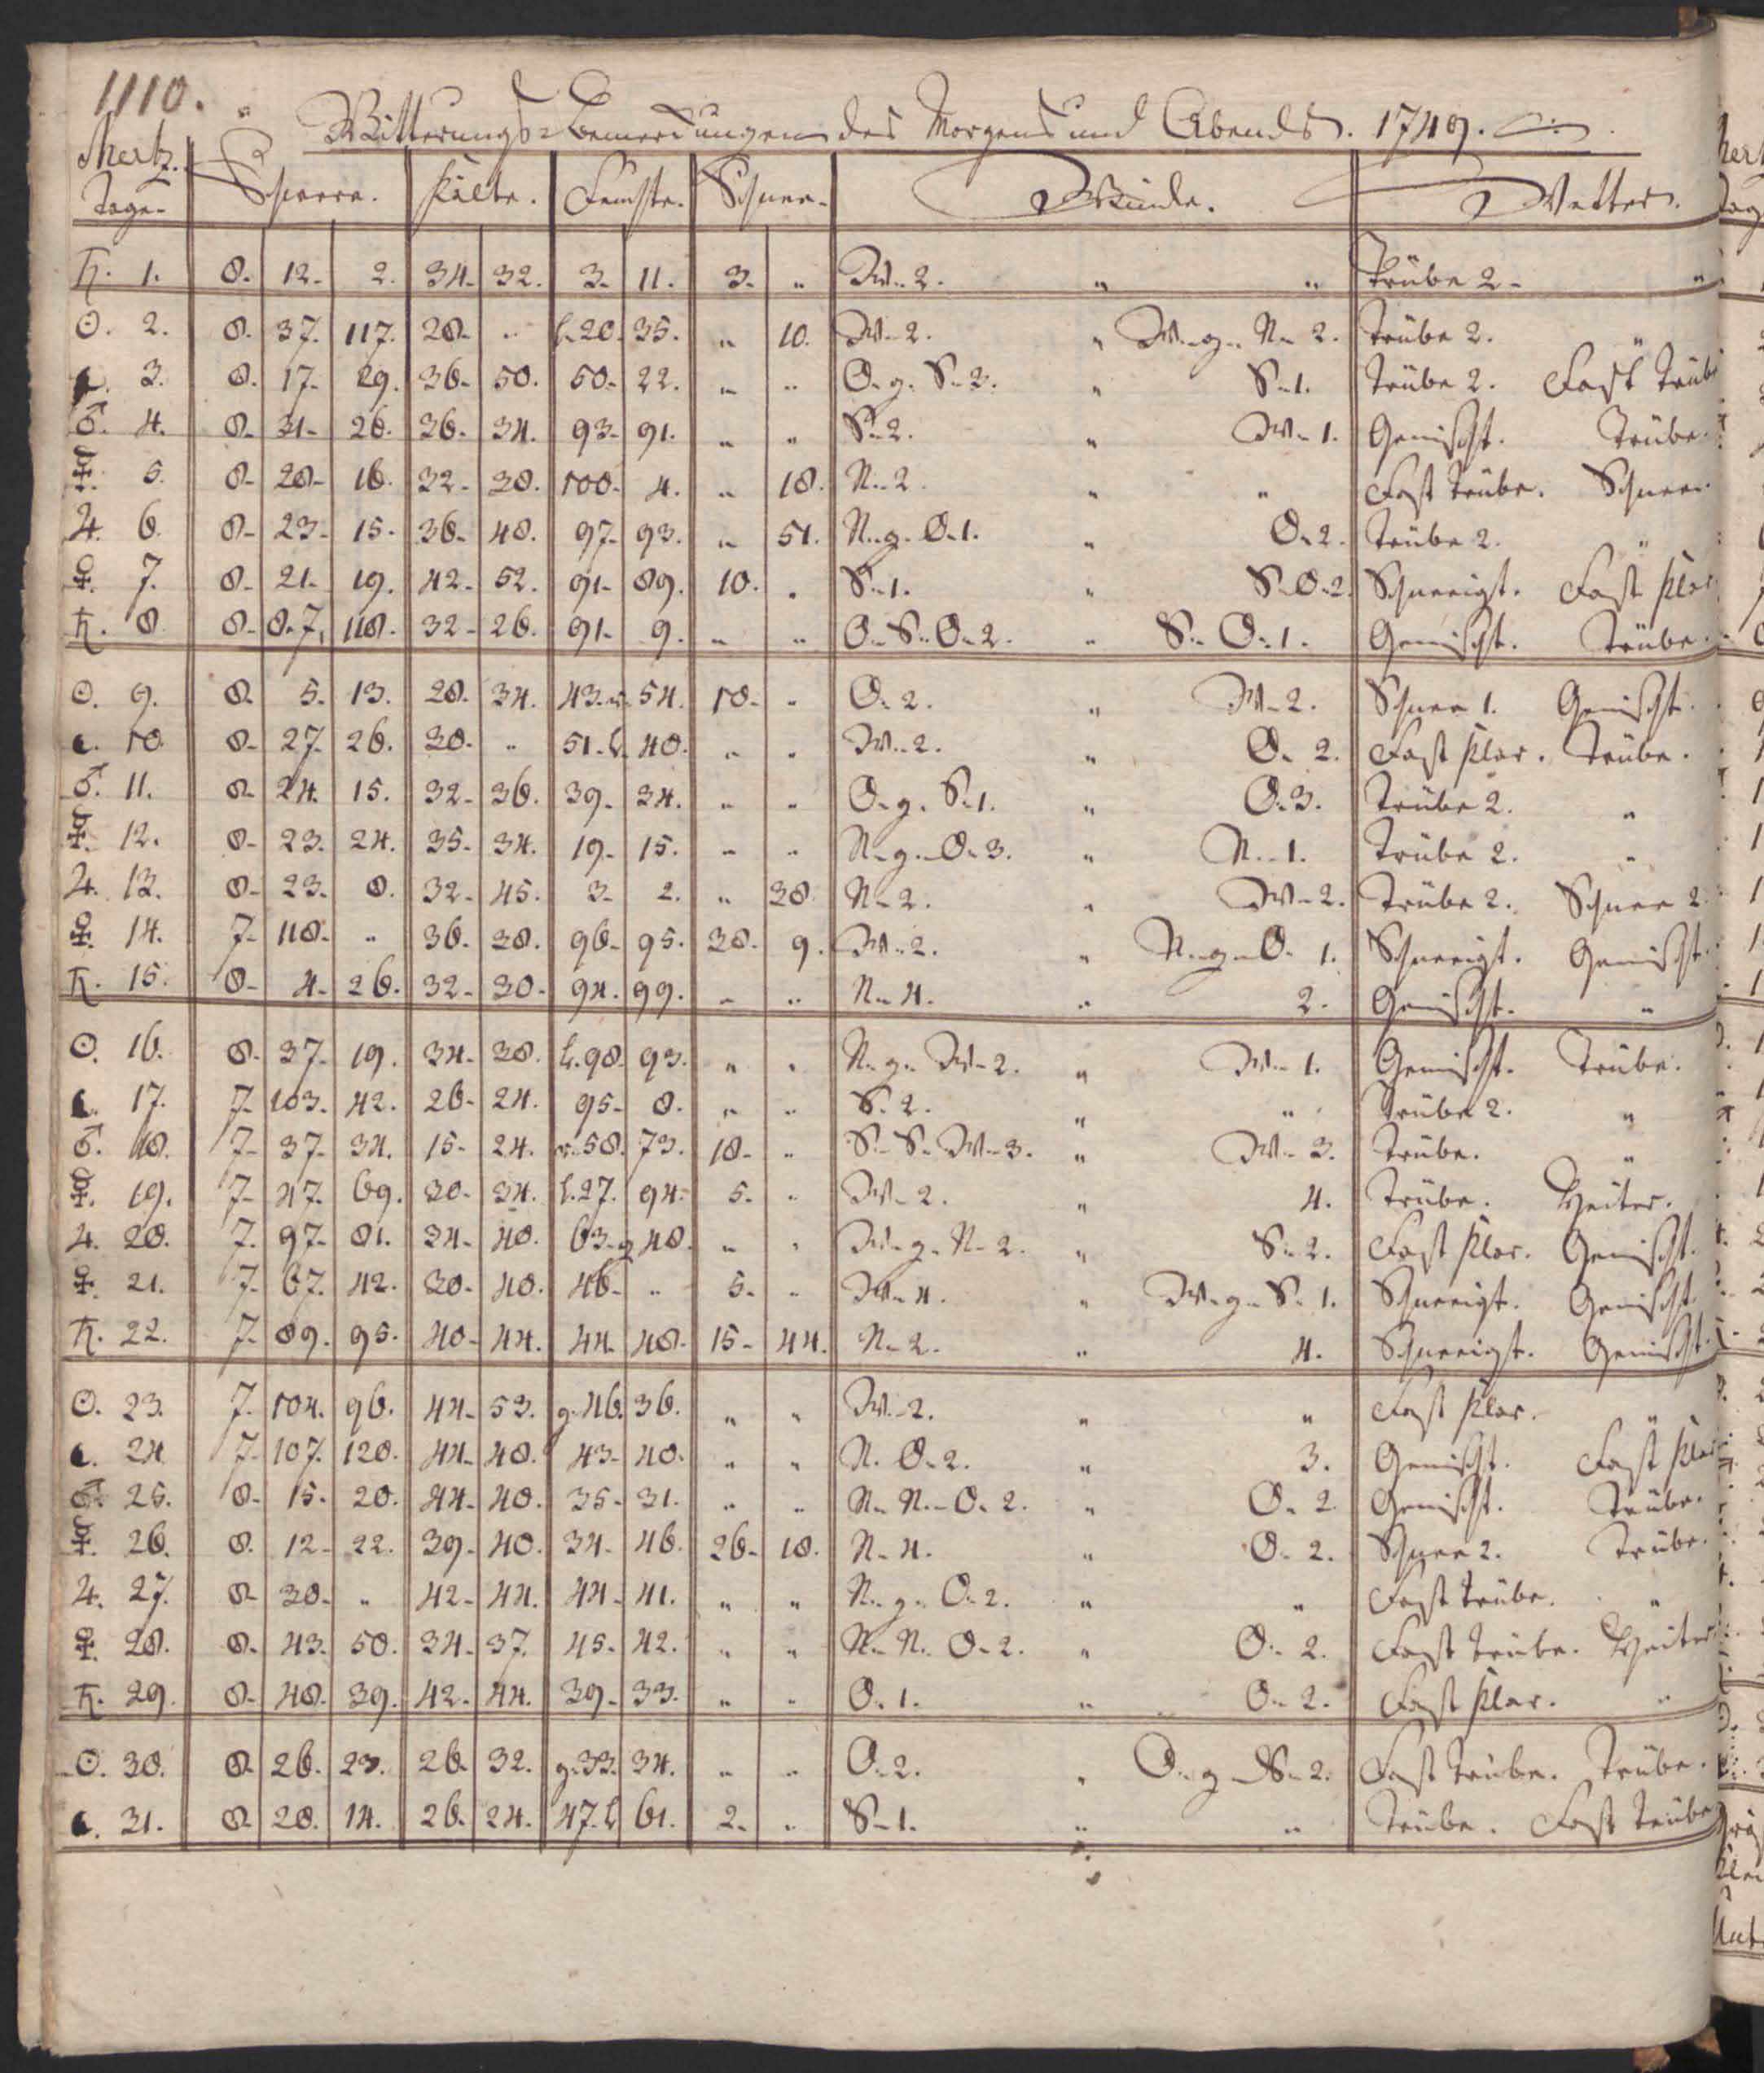 1110.
Witterungs-Bemerckungen des Morgens und Abends. 1749.
Mertz.
Tage. Schwere. Kälte. Feuchte. Schnee. Winde. Wetter.
♄. 1. 8. 12. 2. 34. 32. 3. 11. 3. " W. 2. " " Trübe 2. "
☉. 2. 8. 37. 117. 28. " h. 20. 35. " 10. W. 2. " W. g. N. 2. Trübe 2. "
☾. 3. 8. 17. 29. 36. 50. 50. 22. " " O. g. S. 3. " S. 1. Trübe 2. Fast Trübe
♂. 4. 8. 31. 26. 36. 34. 93. 91. " " S. 2. " W. 1. Gemischt. Trübe.
☿. 5. 8. 28. 16. 32. 38. 100. 4. " 18. N. 2. " " Fast Trübe. Schnee.
♃. 6. 8. 23. 15. 36. 48. 97. 93. " 51. N. g. O. 1. " O. 2. Trübe 2. "
♀. 7. 8. 21. 19. 42. 52. 91. 89. 10. " S. 1. " S. O. 2. Schneeigt. Fast Klar
♄. 8. 8. 8. 7, 118. 32. 26. 91. 9. " " O. S. O. 2. " S. O. 1. Gemischt. Trübe.
☉. 9. 8. 5. 13. 28. 34. 43. r. 54. 10. " O. 2. " W. 2. Schnee 1. Gemischt.
☾. 10. 8. 27. 26. 30. " 51. h. 40. " " W. 2. " O. 2. Fast Klar. Trübe.
♂. 11. 8. 24. 15. 32. 36. 39. 34. " " O. g. S. 1. " O. 3. Trübe 2. "
☿. 12. 8. 23. 24. 35. 34. 19. 15. " " N. g. O. 3. " N. 1. Trübe 2. "
♃. 13. 8. 23. 8. 32. 45. 3. 2. " 38. N. 2. " W. 2. Trübe 2. Schnee 2.
♀. 14. 7. 118. " 36. 38. 96. 95. 38. 9. W. 2. " N. g. O. 1. Schneeigt. Gemischt.
♄. 15. 8. 4. 26. 32. 30. 94. 99. " " N. 4. " 2. Gemischt. "
☉. 16. 8. 37. 19. 34. 38. h. 98. 93. " " N. g. W. 2. " W. 1. Gemischt. Trübe.
☾. 17. 7. 103. 42. 26. 24. 95. 8. " " S. 2. " " Trübe 2. "
♂. 18. 7. 37. 34. 15. 24. r. 58. 73. 18. " S. S. W. 3. " W. 3. Trübe. "
☿. 19. 7. 47. 69. 30. 34. h. 27. 94. 5. " W. 2. " 4. Trübe. Heiter.
♃. 20. 7. 97. 81. 34. 48. 63. g. 48. " " W. g. N. 2. " S. 2. Fast Klar. Gemischt.
♀. 21. 7. 67. 42. 30. 40. 46. " 5. " W. 4. " W. g. S. 1. Schneeigt. Gemischt.
♄. 22. 7. 89. 95. 40. 44. 44. 48. 15. 44. N. 2. " 4. Schneeigt. Gemischt.
☉. 23. 7. 104. 96. 44. 53. g. 46. 36. " " W. 2. " " Fast Klar. "
☾. 24. 7. 107. 120. 44. 48. 43. 40. " " N. O. 2. " 3. Gemischt. Fast Klar
♂. 25. 8. 15. 20. 44. 40. 35. 31. " " N. N. O. 2. " O. 2. Gemischt. Trübe.
☿. 26. 8. 12. 22. 39. 40. 34. 46. 26. 18. N. 4. " O. 2. Schnee 2. Trübe.
♃. 27. 8. 30. " 42. 44. 44. 41. " " N. g. O. 2. " " Fast Trübe. "
♀. 28. 8. 43. 50. 34. 37. 45. 42. " " N. N. O. 2. " O. 2. Fast Trübe. Heiter
♄. 29. 8. 48. 39. 42. 44. 39. 33. " " O. 1. " O. 2. Fast Klar. "
☉. 30. 8. 26. 23. 26. 32. g. 33. 34. " " O. 2. " O. g. S. 2. Fast Trübe. Trübe.
☾. 31. 8. 28. 14. 26. 24. 47. h. 61. 2. " S. 1. " " Trübe. Fast Trübe